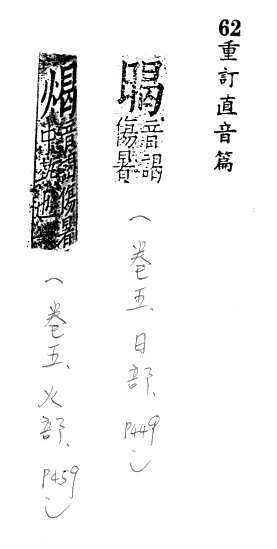 62重訂直音篇
暍音謁傷暑
(卷五、日部、P449)
音謁傷暑中
(卷五、火部、P459)